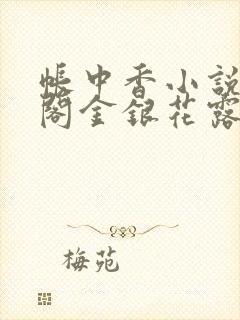 帳中香小說
閣金銀花露
梅苑